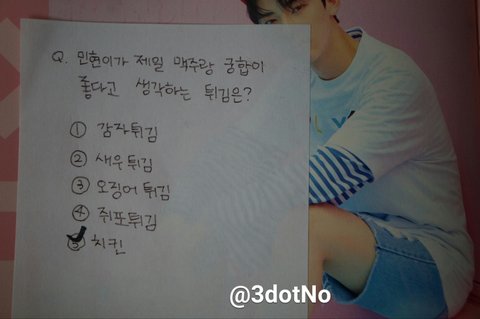 Q. 민현이가 제일 맥주랑 궁합이
좋다고 생각하는 튀김은?
① 감자튀김
② 새우튀김
③ 오징어 튀김
④ 쥐포튀김
⑤ 치킨
@3dotNo